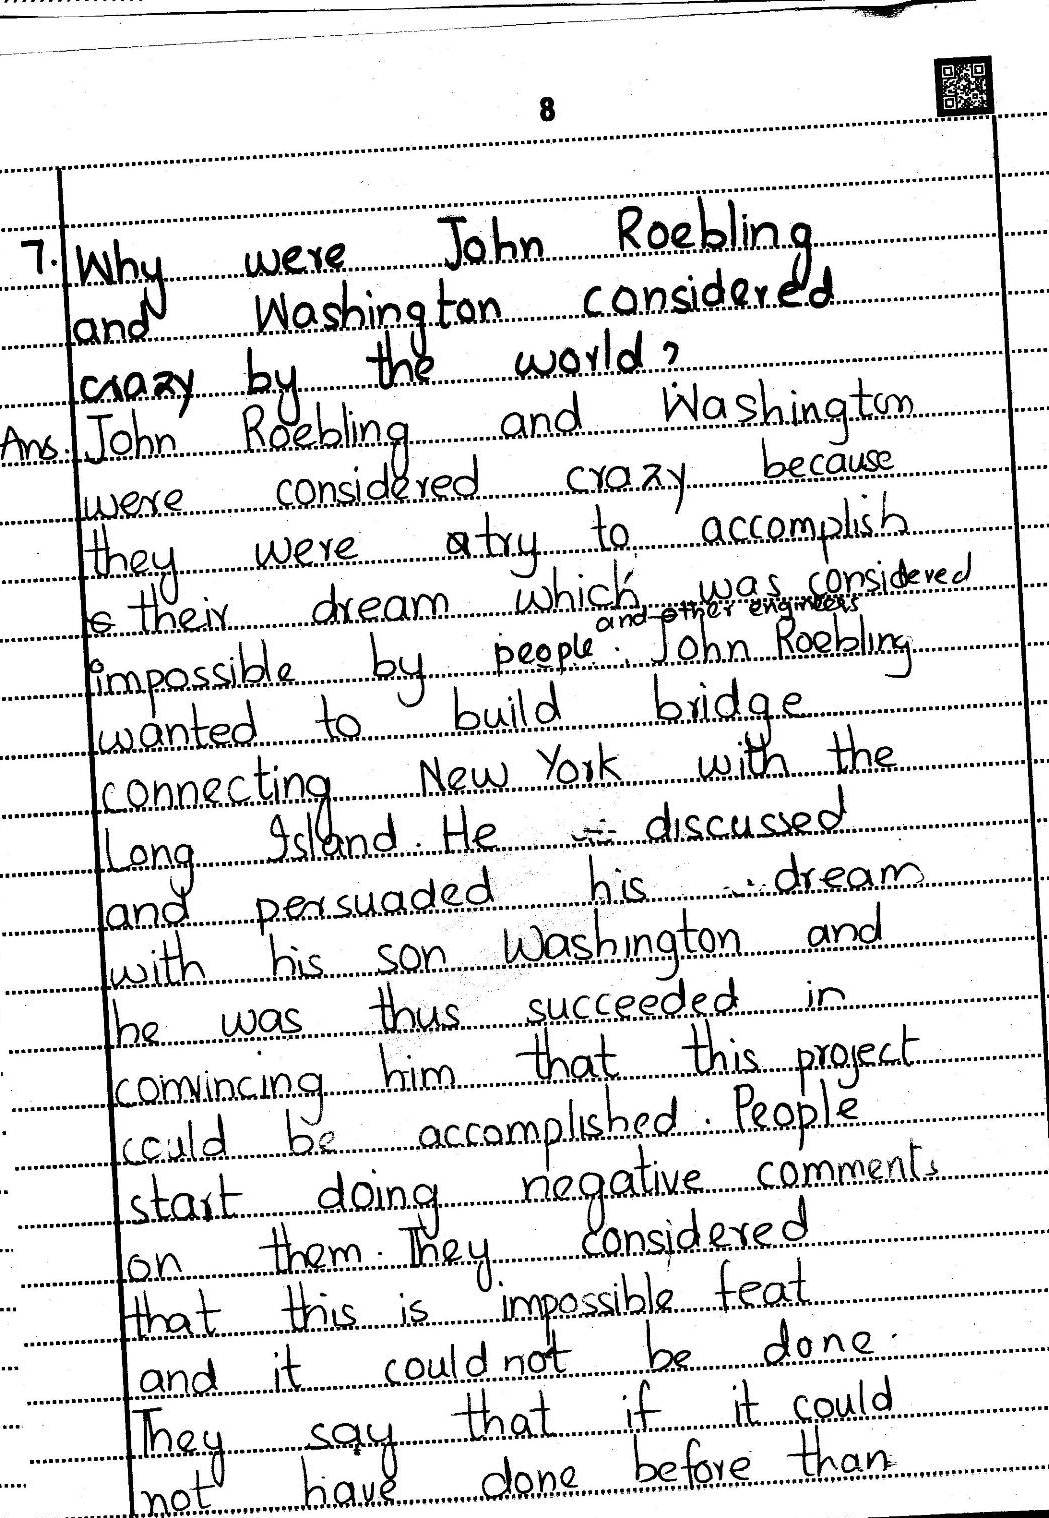 8
7. Why were John Roebling
and Washington considered
crazy by the world?
Ans. John Roebling and Washington
were considered crazy because
they were atry to accomplish
their dream which was considered
and other engineers
impossible by people. John Roebling
wanted to build bridge
connecting New York with the
Long Island. He discussed
and persuaded his dream
with his son Washington and
he was thus succeeded in
convincing him that this project
could be accomplished. People
start doing negative comments
on them. They considered
that this is impossible feat
and it could not be done.
They say that if it could
not have done before than